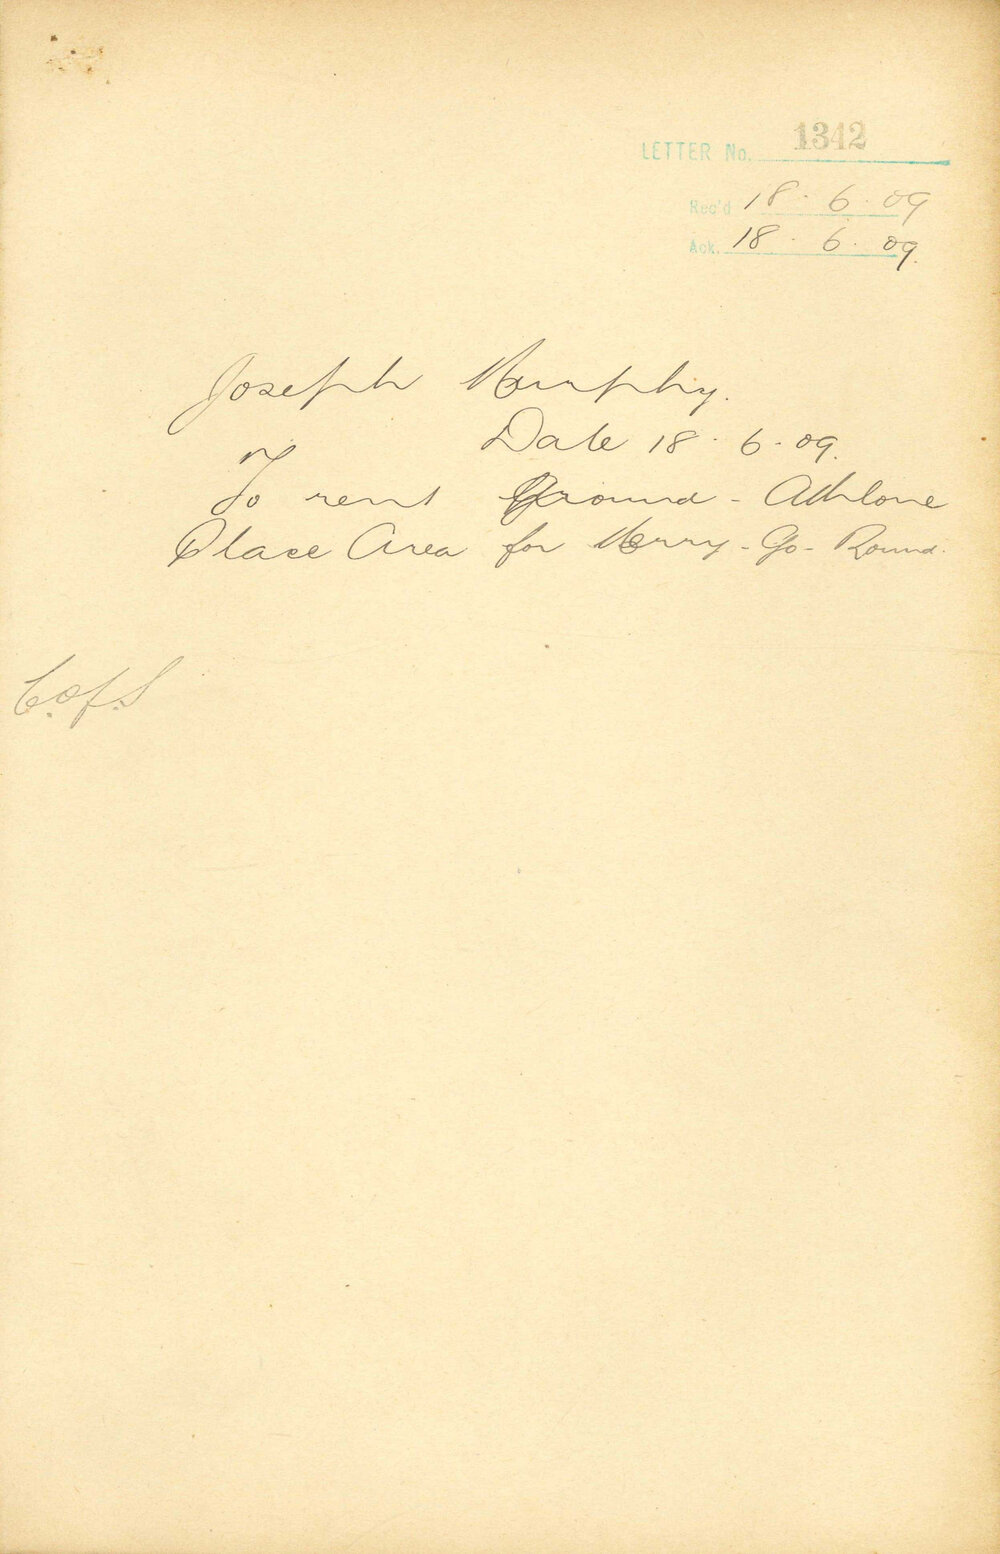 LETTER No. 1342
Rec'd 18.6.09
Ack. 18.6.09.
Joseph Murphy.
Date 18.6.09.
To rent Ground - Athlone
Place Area for Merry-Go-Round.
C.of.S